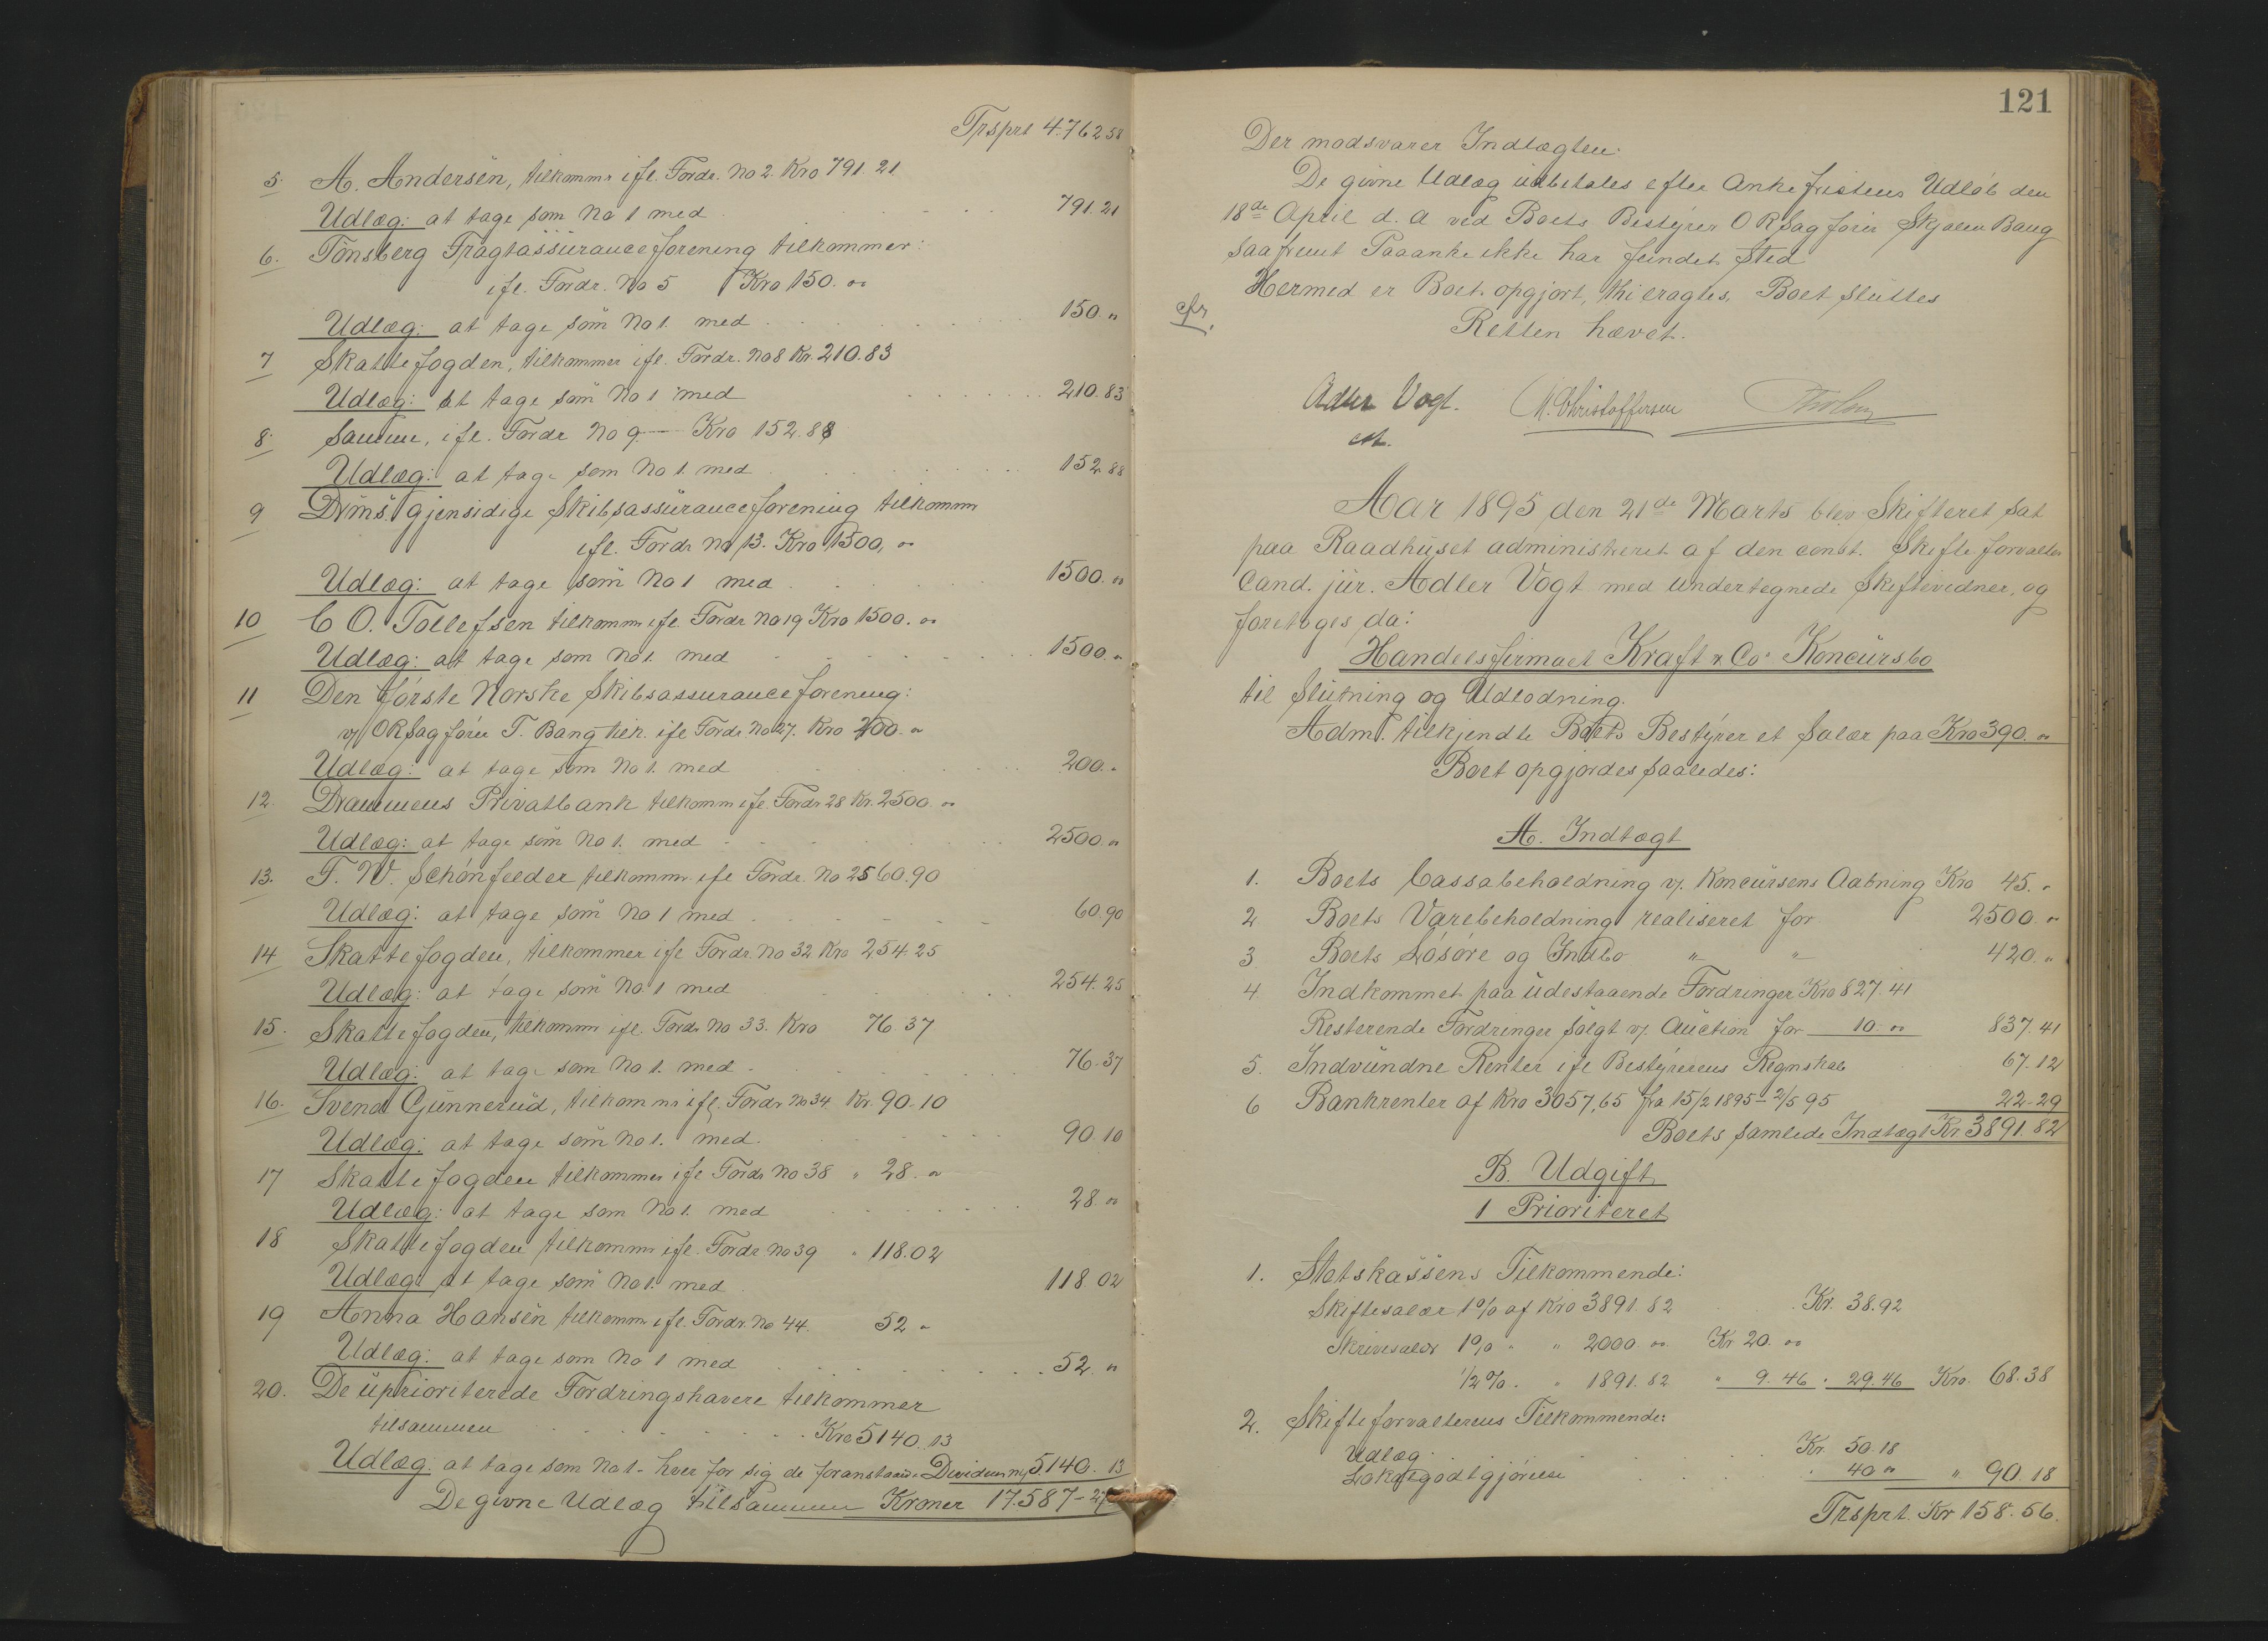 Trsprt 4762 58
5. A. Andersen, tilkommr ifl. Fordr. No 2. Kro 791. 21
Udlæg: at tage som No 1 med 791. 21
6. Tönsberg Fragtassuranceforening tilkommer:
ifl. Fordr. No 5 Kro 150. "
Udlæg: at tage som No 1. med 150. "
7 Skattefogden, tilkommer ifl. Fordr. No 8 Kr. 210.83
Udlæg: at tage som No 1 med 210. 83
8. Samme, ifl. Fordr No 9 — Kro 152. 88
Udlæg: at tage som No 1. med 152. 88
9 Drms. gjensidige Skibsassuranceforening tilkomm
ifl. Fordr No 13. Kro 1500, "
Udlæg: at tage som No 1 med 1500. "
10 C O. Tollefsen tilkomm ifl. Fordr No 19 Kro 1500. "
Udlæg: at tage som No 1. med 1500. "
11 Den første Norske Skibsassuranceforening:
v/ ORSagfører T. Bang tilk. ifl Fordr. No 27. Kro 200. "
Udlæg: at tage som No 1. med 200. "
12. Drammens Privatbank tilkomm ifl. Fordr 28 Kr. 2500. "
Udlæg: at tage som No 1. med 2500. "
13. F. W. Schönfelder tilkommr. ifl Fordr. No 25 60.90
Udlæg: at tage som No 1 med 60.90
14 Skattefogden, tilkommer ifl Fordr. No 32 Kro 254. 25
Udlæg: at tage som No. 1 med 254. 25
15. Skattefogden, tilkommr ifl. Fordr No 33. Kro 76 37
Udlæg: at tage som No 1. med 76. 37
16. Svend Gunnerud, tilkommr ifl. Fordr No 34 Kr. 90. 10
Udlæg: at tage som No 1. med. 90. 10
17 Skattefogden tilkommer ifl Fordr No 38 " 28. "
Udlæg: at tage som No 1. med 28. "
18 Skattefogden tilkommr ifl. Fordr No 39 " 118.02
Udlæg: at tage som No 1. med 118 02
19 Anna Hansen tilkomm ifl. Fordr. No 44. 52 "
Udlæg: at tage som No 1 med 52. "
20. De uprioriterede Fordringshavere tilkommer
tilsammen Kro 5140. 13
Udlæg: at tage som No 1. hver for sig de foranstaaende Dividen m/ 5140. 13
De givne Udlæg tilsammen Kroner 17.587 - 27
121
Der modsvarer Indtægten.
De givne Udlæg udbetales efter Ankefristens Udløb den
18de April d. A ved Boets Bestyrer ORSagfører Skjølen Bang
saafremt Paaanke ikke har fundet Sted
Hermed er Boet opgjort, thi eragtes, Boet sluttes
cfr.
Retten hævet.
Adler Vogt. M. Christoffersen
cst.
Aar 1895 den 21de Marts blev Skifteret sat
paa Raadhuset administreret af den const. Skifteforvalter
Cand. jur. Adler Vogt med undertegnede Skiftevidner, og
foretoges da:
Handelsfirmaet Kraft & Co. Koncursbo
til Slutning og Udlodning.
Adm. tilkjendte Boets Bestyrer et Salær paa Kro 390. "
Boet opgjordes saaledes:
A. Indtægt
1. Boets Cassabeholdning v. Koncursens Aabning Kro 45. "
2 Boets Varebeholdning realiseret for 2500. "
3 Boets Løsøre og Indbo " " 420. "
4 Indkommet paa udestaaende Fordringer Kro 827. 41
Resterende Fordringer solgt v. Auction for 10. " 837. 41
5. Indvundne Renter ifl Bestyrerens Regnskab 67. 12
6 Bankrenter af Kro 3057,65 fra 15/2 1895 - 2/5 95 22 - 29
Boets samlede Indtægt Kr 3891. 82
B. Udgift
1 Prioriteret
1. Statskassens Tilkommende:
Skiftesalær 1% af Kro 3891. 82 Kr. 38.92
Skrivesalær 1% " " 2000. " Kr 20. "
1/2 % " " 1891. 82 " 9. 46 " 29.46 Kro. 68.38
2. Skifteforvalterens Tilkommende:
Udlæg Kr. 50. 18
Lokalegodtgjørelse " 40 " " 90. 18
Trsprt. Kr 158. 56.